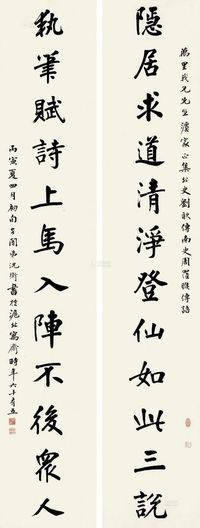 萬里我兄先生灋家正集北史劉歊傳南史周羅睺傳語
隱居求道清淨登仙如此三說
執筆賦詩上馬入陣不後眾人
丙寅夏四月初旬吉閩弟沈衛書於滬北寓齋時年六十有五